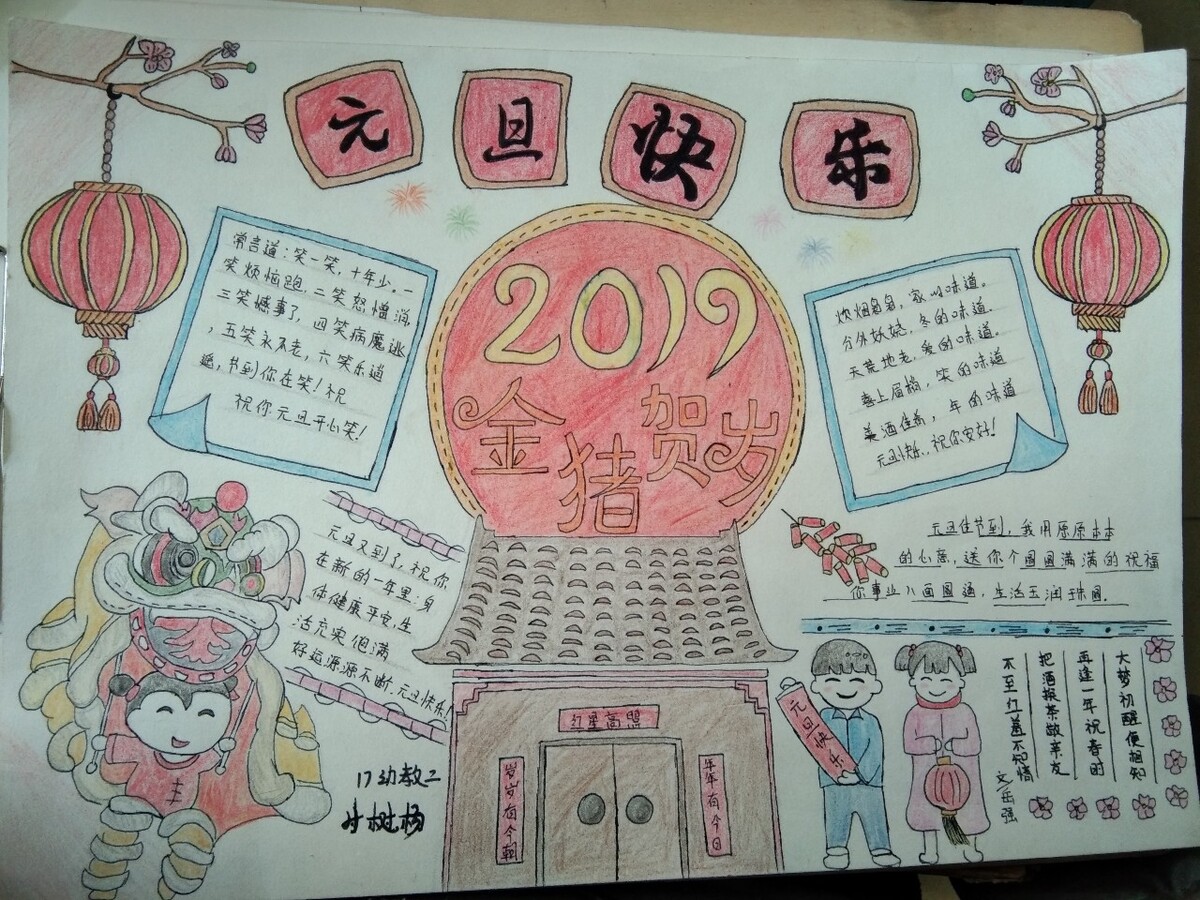 元旦快乐
常言道：笑一笑，十年少。一
笑烦恼跑二笑怒憎消,
三笑憾事了，四笑病魔逃
，五笑永不老，六笑乐逍
遥，节到你在笑！祝
祝你元旦开心笑！
2019
金猪贺岁
炊烟袅袅，家的味道。
分外妖娆，冬的味道.
天荒地老，爱的味道。
喜上眉梢，笑的味道
美酒佳肴，年的味道
元旦快乐，祝你安好！
元旦又到了，祝你
在新的一年里：身
体健康平安，生
活充实饱满
好运源源不断，元旦快乐！
元旦佳节到，我用原原本本
的心意，送你个圆圆满满的祝福
你事业八面圆通，生活玉润珠圆。
红星高照
岁岁有今朝
年年有今日
元旦快乐
大梦初醒便相知
再逢一年祝春时
把酒报茶敬亲友
不至打盖不知情
文/岳强
17幼教二
叶树杨